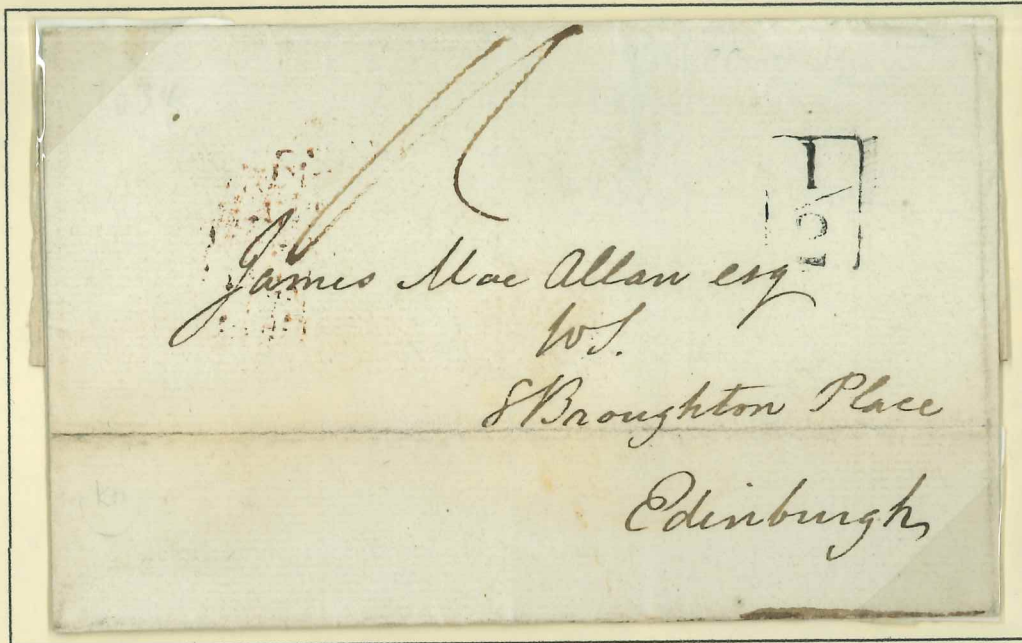 1
2
James Mac Allan esq
WS.
8 Broughton Place
Edinburgh